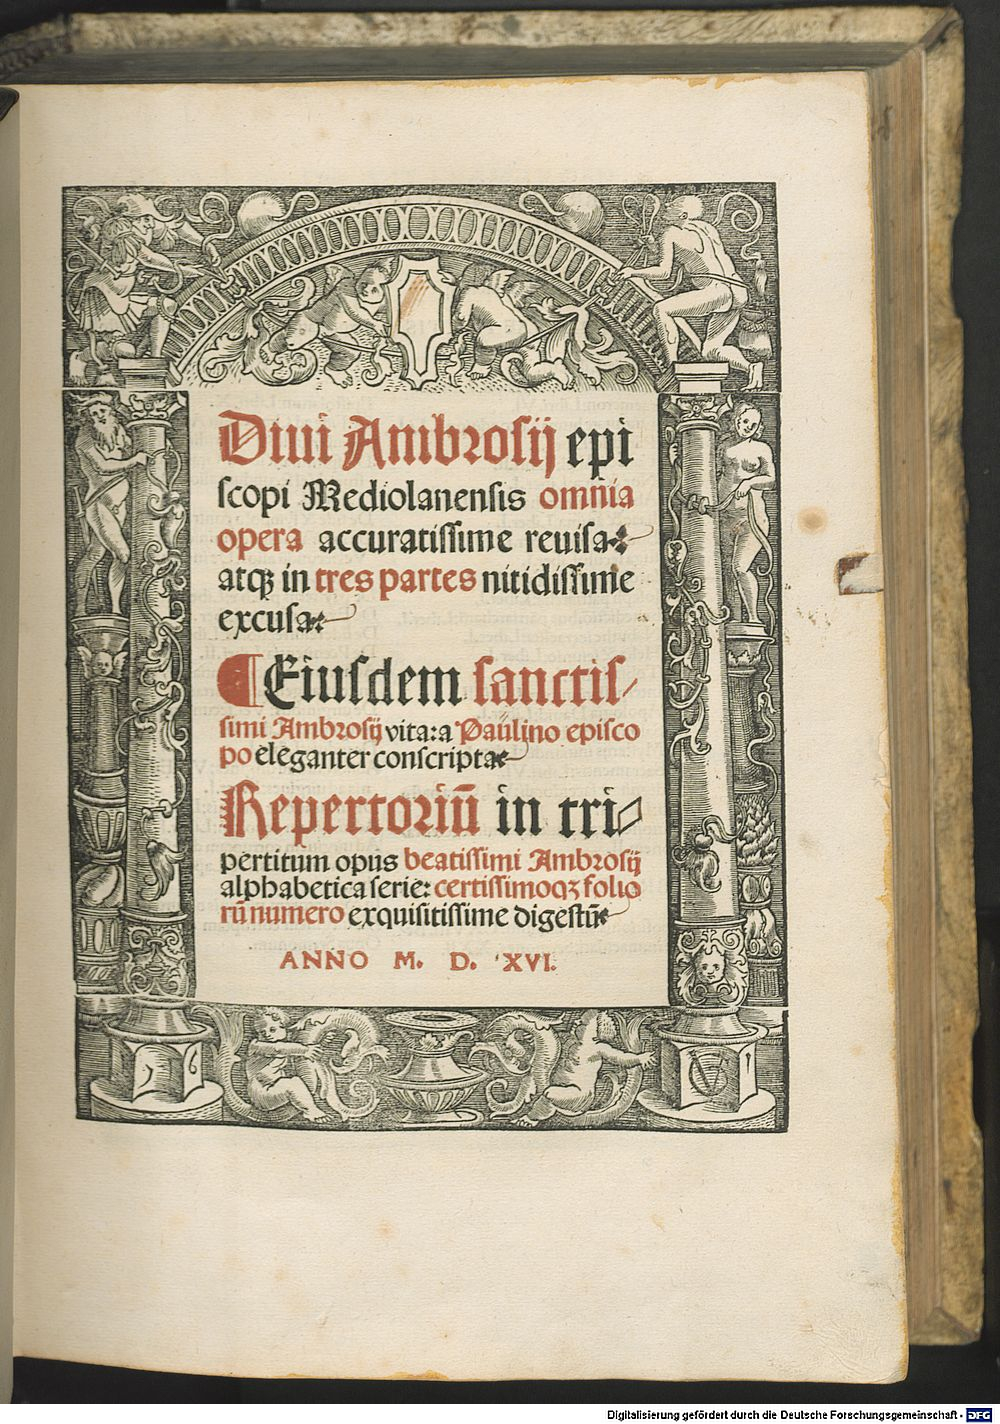 Diui Ambrosij epi
scopi Mediolanensis omnia
opera accuratissime reuisa:
atq in tres partes nitidissime
excusa:
¶ Eiusdem sanctis/
simi Ambrosij vita: a Paulino episco
po eleganter conscripta:
Repertoriū in tri⸗
pertitum opus beatissimi Ambrosij
alphabetica serie: certissimoqꝫ folio
rū numero exquisitissime digestū:
ANNO M. D. XVI.
Digitalisierung gefördert durch die Deutsche Forschungsgemeinschaft - DFG